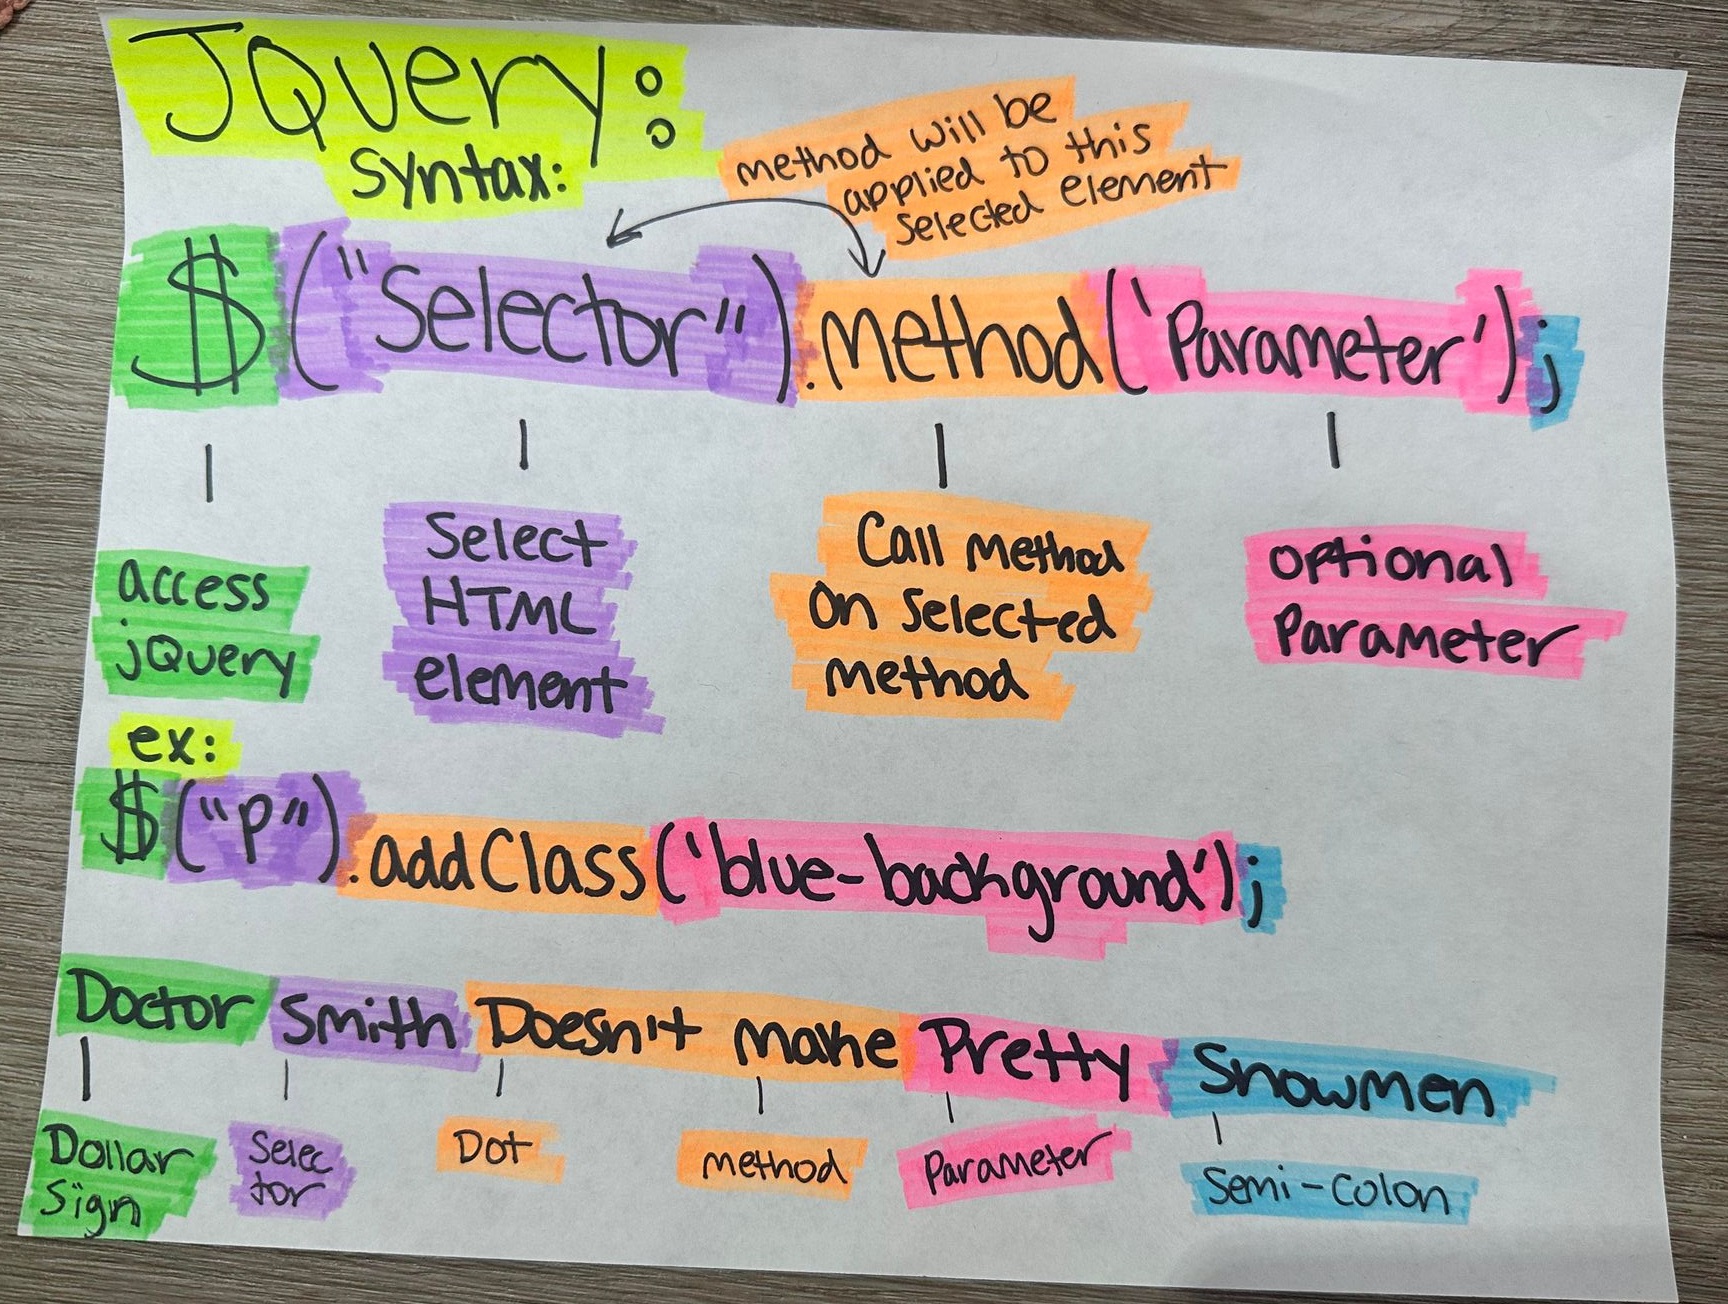 JQuery:
syntax:
method will be
applied to this
selected element
$("Selector").method('Parameter');
access
jQuery
Select
HTML
element
Call method
on selected
method
optional
Parameter
ex:
$("P").addClass('blue-background');
Doctor Smith Doesn't make Pretty Snowmen
Dollar
Sign
Selec
tor
Dot
method
Parameter
Semi-colon